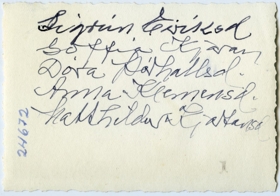 Sigrún Eiríksd
Soffía Kjaran
Dóra Þórhallsd.
Anna Klemensd.
Matthildur Kjartansd
24672